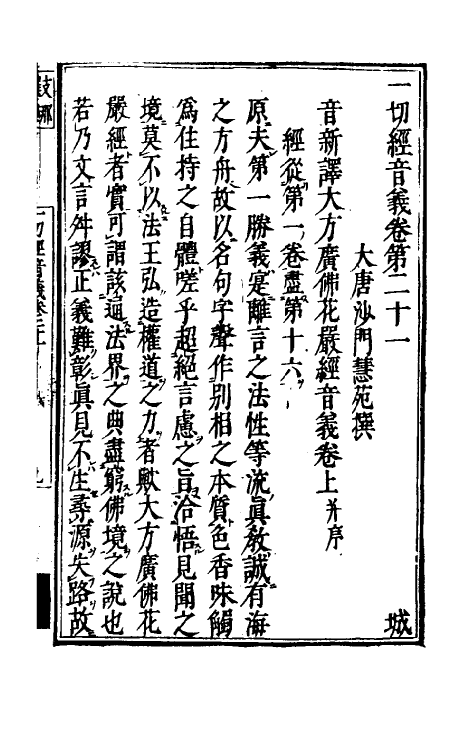 一切經音義卷第二十一　　城
大唐沙門慧苑撰
音新譯大方廣佛花嚴經音義卷上并序
經從第一卷盡第十六
原夫第一勝義寔離言之法性等流真教誠有海
之方舟故以名句字聲作別相之本質色香味觸
為住持之自體嗟乎超絕言慮之旨洽悟見聞之
境莫不以法王弘造權道之力者歟大方廣佛花
嚴經者實可謂該通法界之典盡窮佛境之說也
若乃文言舛謬正義難彰真見不生尋源失路故